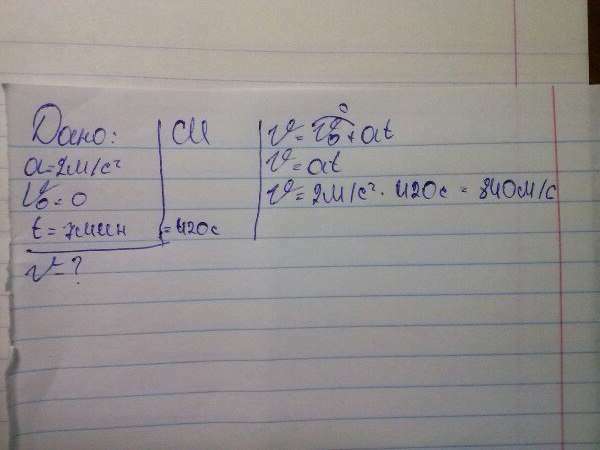 Дано:
a=2м/с²
V₀=0
t=7мин
v-?
СИ
=420с
v=v₀+at
0
v=at
v=2м/с²·420с=840м/с